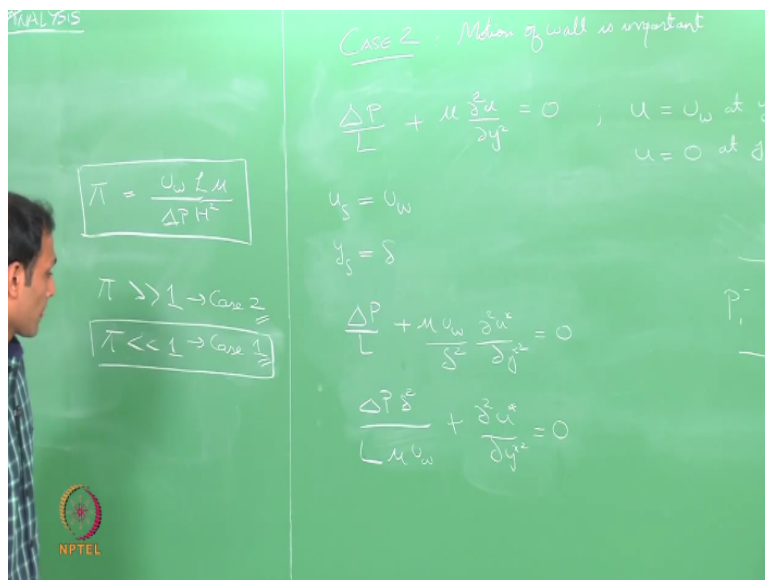 ANALYSIS
π = U_w L μ / ΔP H²
π >> 1 → Case 2
π << 1 → Case 1
CASE 2 . Motion of wall is important
ΔP/L + μ ∂²u/∂y² = 0 ; u = U_w at y
u = 0 at y
u_s = U_w
y_s = δ
ΔP/L + μ U_w/δ² ∂²u*/∂y*² = 0
ΔP δ²/L μ U_w + ∂²u*/∂y*² = 0
P₁
NPTEL